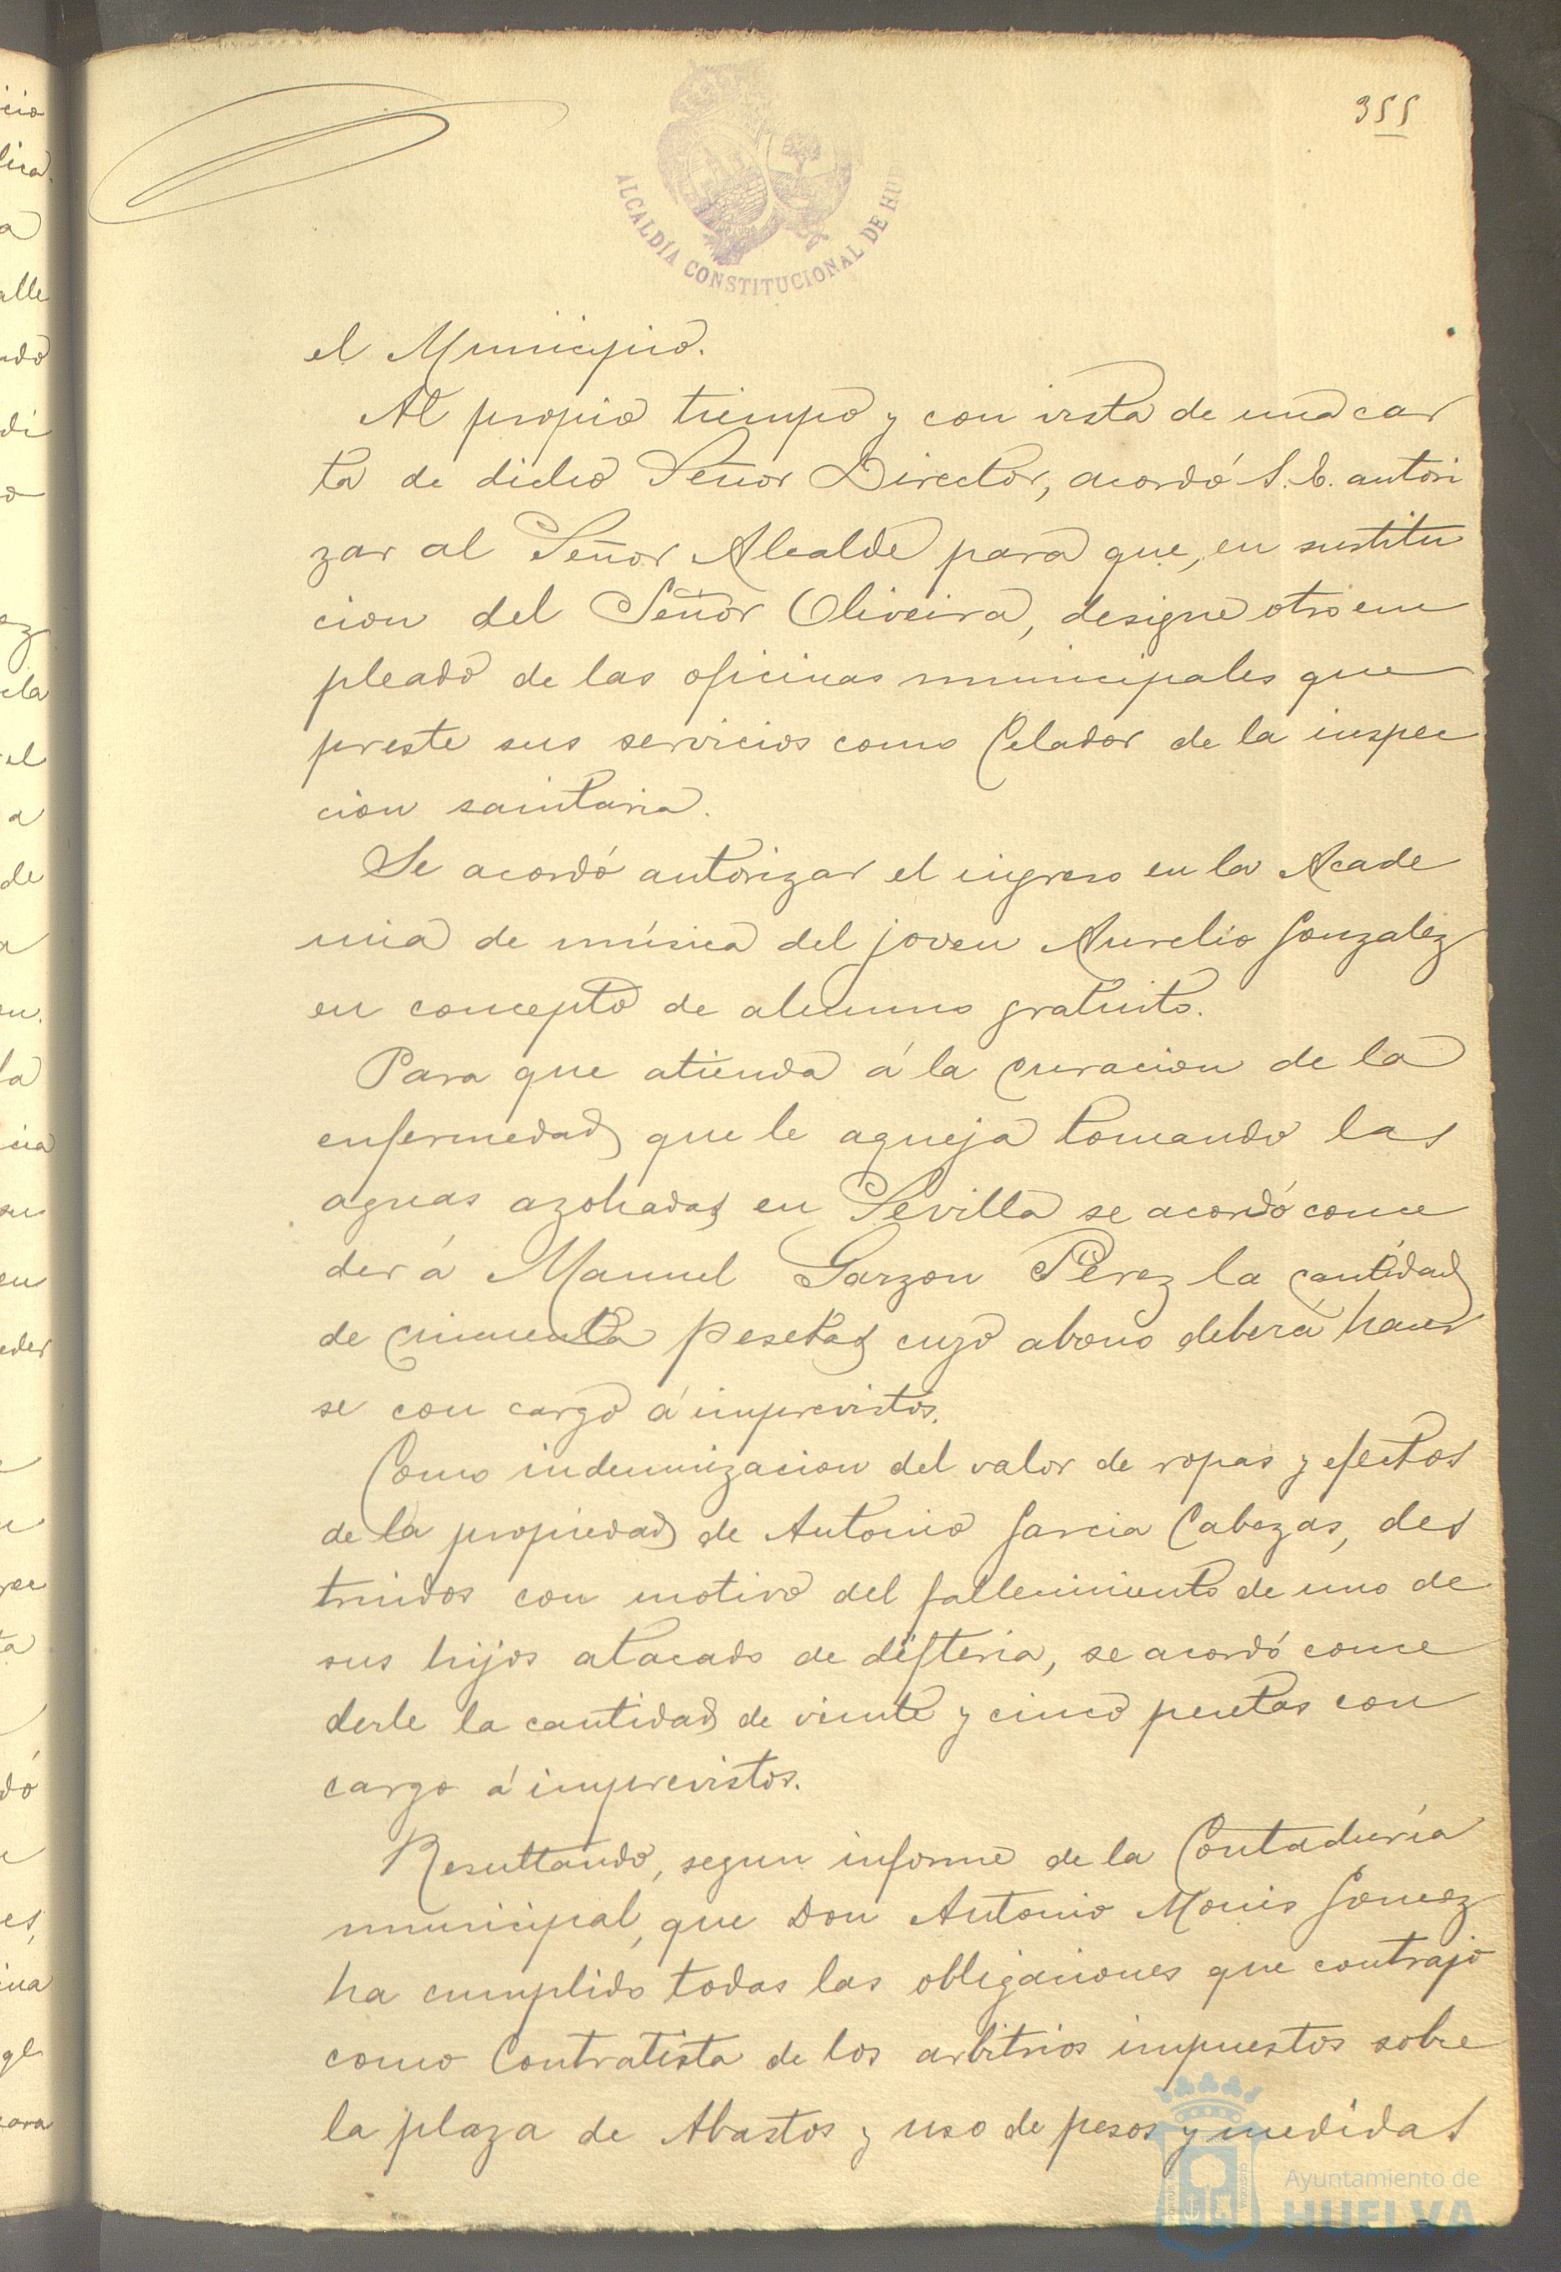 355
ALCALDÍA CONSTITUCIONAL DE HU
el Municipio.
Al propio tiempo y con vista de una car
ta de dicho Señor Director, acordó S.E. autori
zar al Señor Alcalde para que, en sustitu
cion del Señor Oliveira, designe otro em
pleado de las oficinas municipales que
preste sus servicios como Celador de la inspec
cion sanitaria.
Se acordó autorizar el ingreso en la Acade
mia de música del joven Aurelio Gonzalez
en concepto de alumno gratuito.
Para que atienda á la curacion de la
enfermedad que le aqueja tomando las
aguas azohadas en Sevilla se acordó conce
der á Manuel Garzon Pérez la cantidad
de cincuenta pesetas cuyo abono deberá hacer
se con cargo á imprevistos.
Como indemnizacion del valor de ropas y efectos
de la propiedad de Antonio Garcia Cabezas, des
truidos con motivo del fallecimiento de uno de
sus hijos atacado de difteria, se acordó conce
derle la cantidad de veinte y cinco pesetas con
cargo á imprevistos.
Resultando, segun informe de la Contaduría
municipal, que Don Antonio Monis Gomez
ha cumplido todas las obligaciones que contrajo
como Contratista de los arbitrios impuestos sobre
la plaza de Abastos y uso de pesos y medidas
Ayuntamiento de
HUELVA